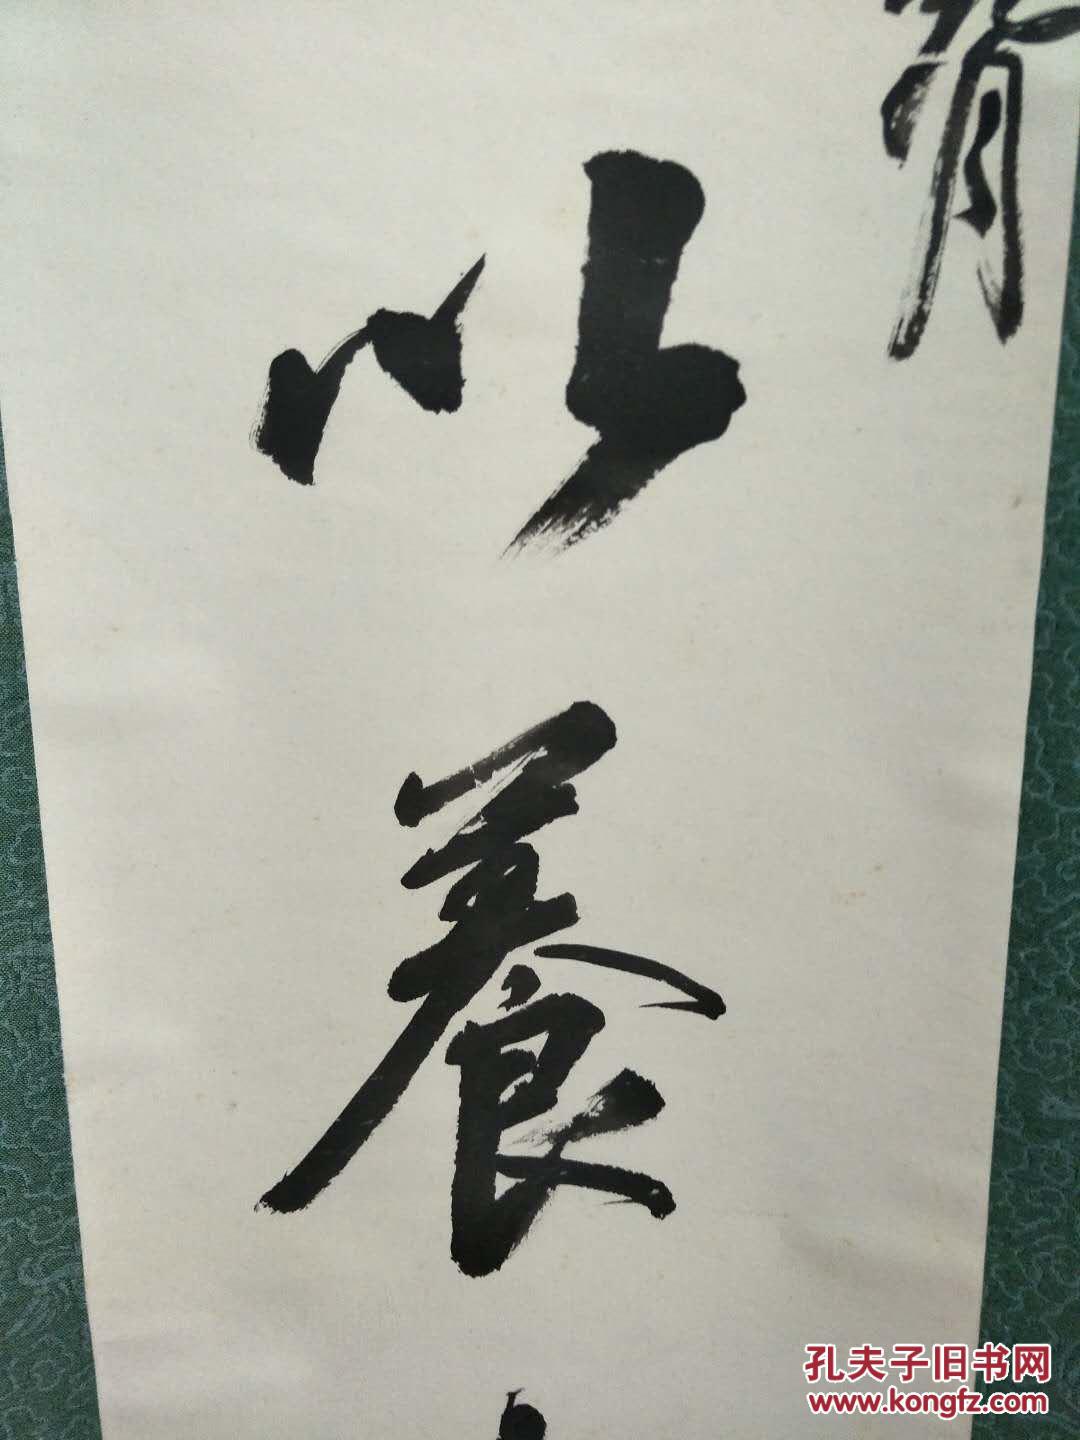 以養
孔夫子旧书网
www.kongfz.com